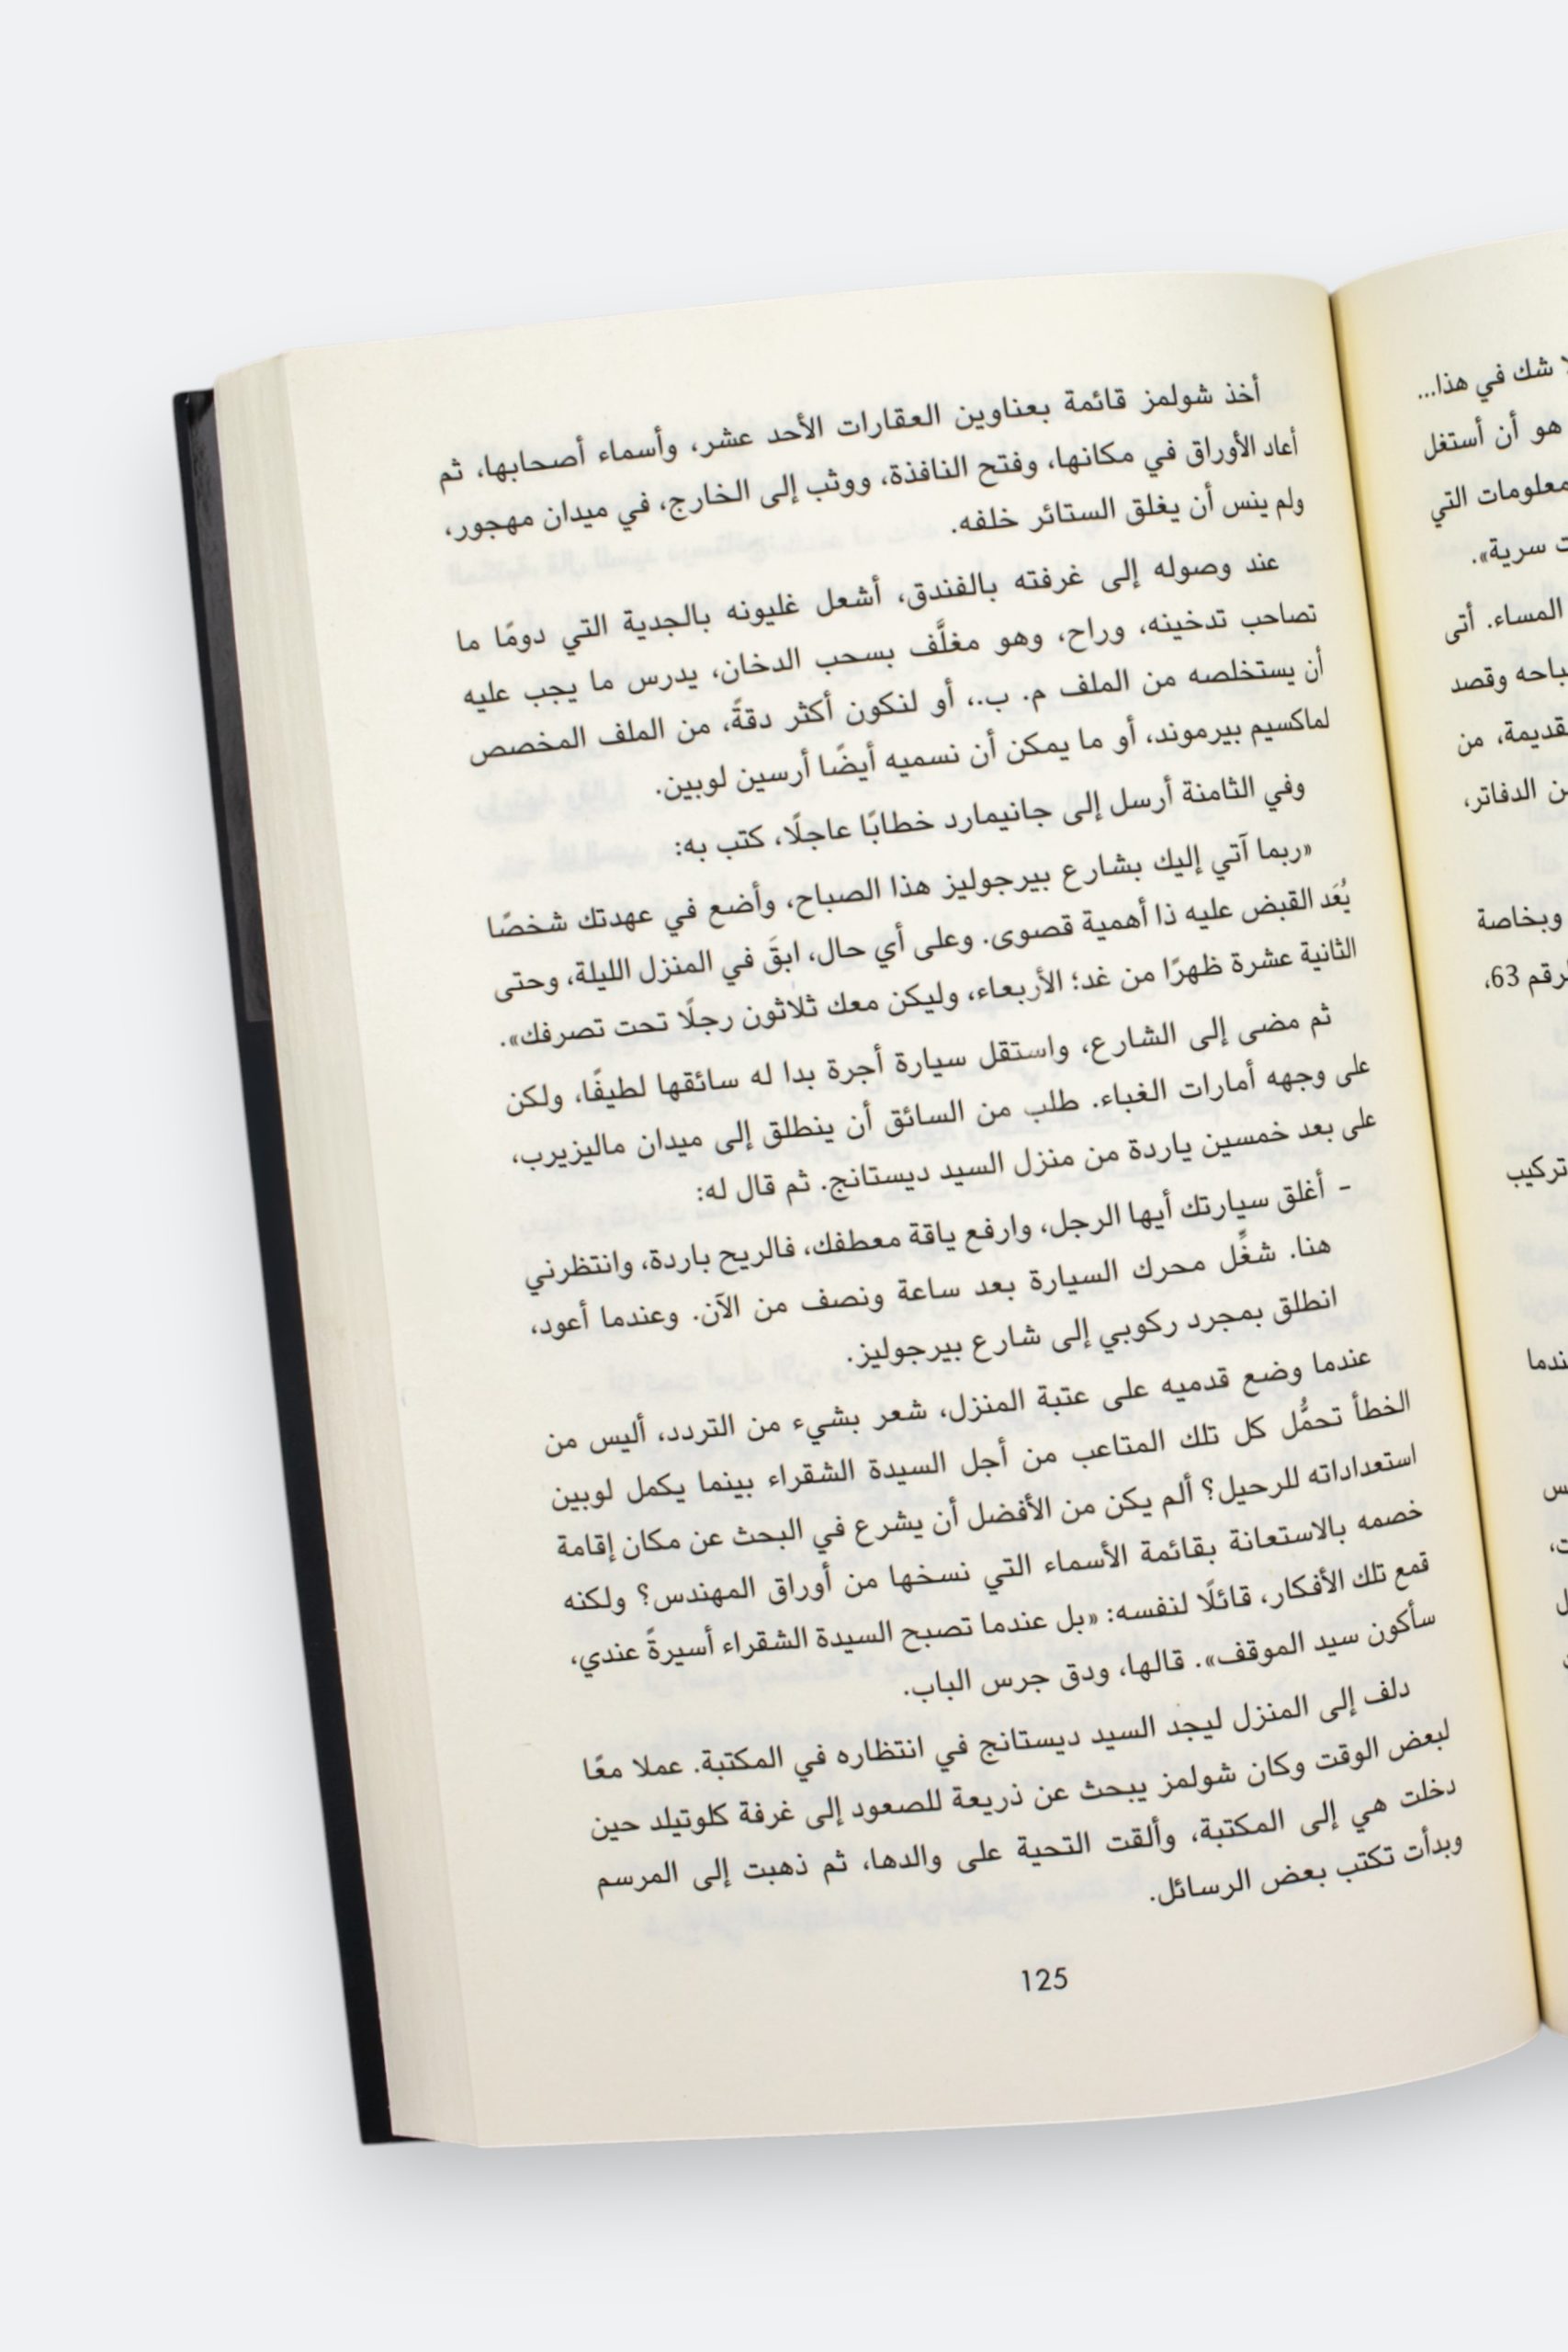 أخذ شولمز قائمة بعناوين العقارات الأحد عشر، وأسماء أصحابها، ثم
أعاد الأوراق في مكانها، وفتح النافذة، ووثب إلى الخارج، في ميدان مهجور،
ولم ينس أن يغلق الستائر خلفه.
عند وصوله إلى غرفته بالفندق، أشعل غليونه بالجدية التي دومًا ما
تصاحب تدخينه، وراح، وهو مغلَّف بسحب الدخان، يدرس ما يجب عليه
أن يستخلصه من الملف م. ب.، أو لنكون أكثر دقةً، من الملف المخصص
لماكسيم بيرموند، أو ما يمكن أن نسميه أيضًا أرسين لوبين.
وفي الثامنة أرسل إلى جانيمارد خطابًا عاجلًا، كتب به:
«ربما آتي إليك بشارع بيرجوليز هذا الصباح، وأضع في عهدتك شخصًا
يُعَد القبض عليه ذا أهمية قصوى. وعلى أي حال، ابقَ في المنزل الليلة، وحتى
الثانية عشرة ظهرًا من غد؛ الأربعاء، وليكن معك ثلاثون رجلًا تحت تصرفك».
ثم مضى إلى الشارع، واستقل سيارة أجرة بدا له سائقها لطيفًا، ولكن
على وجهه أمارات الغباء. طلب من السائق أن ينطلق إلى ميدان ماليزيرب،
على بعد خمسين ياردة من منزل السيد ديستانج. ثم قال له:
- أغلق سيارتك أيها الرجل، وارفع ياقة معطفك، فالريح باردة، وانتظرني
هنا. شغِّل محرك السيارة بعد ساعة ونصف من الآن. وعندما أعود،
انطلق بمجرد ركوبي إلى شارع بيرجوليز.
عندما وضع قدميه على عتبة المنزل، شعر بشيء من التردد، أليس من
الخطأ تحمُّل كل تلك المتاعب من أجل السيدة الشقراء بينما يكمل لوبين
استعداداته للرحيل؟ ألم يكن من الأفضل أن يشرع في البحث عن مكان إقامة
خصمه بالاستعانة بقائمة الأسماء التي نسخها من أوراق المهندس؟ ولكنه
قمع تلك الأفكار، قائلًا لنفسه: «بل عندما تصبح السيدة الشقراء أسيرةً عندي،
سأكون سيد الموقف». قالها، ودق جرس الباب.
دلف إلى المنزل ليجد السيد ديستانج في انتظاره في المكتبة. عملا معًا
لبعض الوقت وكان شولمز يبحث عن ذريعة للصعود إلى غرفة كلوتيلد حين
دخلت هي إلى المكتبة، وألقت التحية على والدها، ثم ذهبت إلى المرسم
وبدأت تكتب بعض الرسائل.
125
شك في هذا...
هو أن أستغل
معلومات التي
سرية».
المساء. أتى
وقصد
من
الدفاتر،
وبخاصة
63،
تركيب